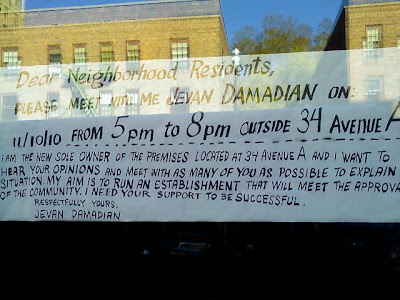 Dear Neighborhood Residents,
PLEASE MEET WITH ME JEVAN DAMADIAN ON:
11/10/10 FROM 5pm to 8pm OUTSIDE 34 AVENUE A
I AM THE NEW SOLE OWNER OF THE PREMISES LOCATED AT 34 AVENUE A AND I WANT TO
HEAR YOUR OPINIONS AND MEET WITH AS MANY OF YOU AS POSSIBLE TO EXPLAIN
SITUATION. MY AIM IS TO RUN AN ESTABLISHMENT THAT WILL MEET THE APPROVA
OF THE COMMUNITY. I NEED YOUR SUPPORT TO BE SUCCESSFUL.
RESPECTFULLY YOURS,
JEVAN DAMADIAN